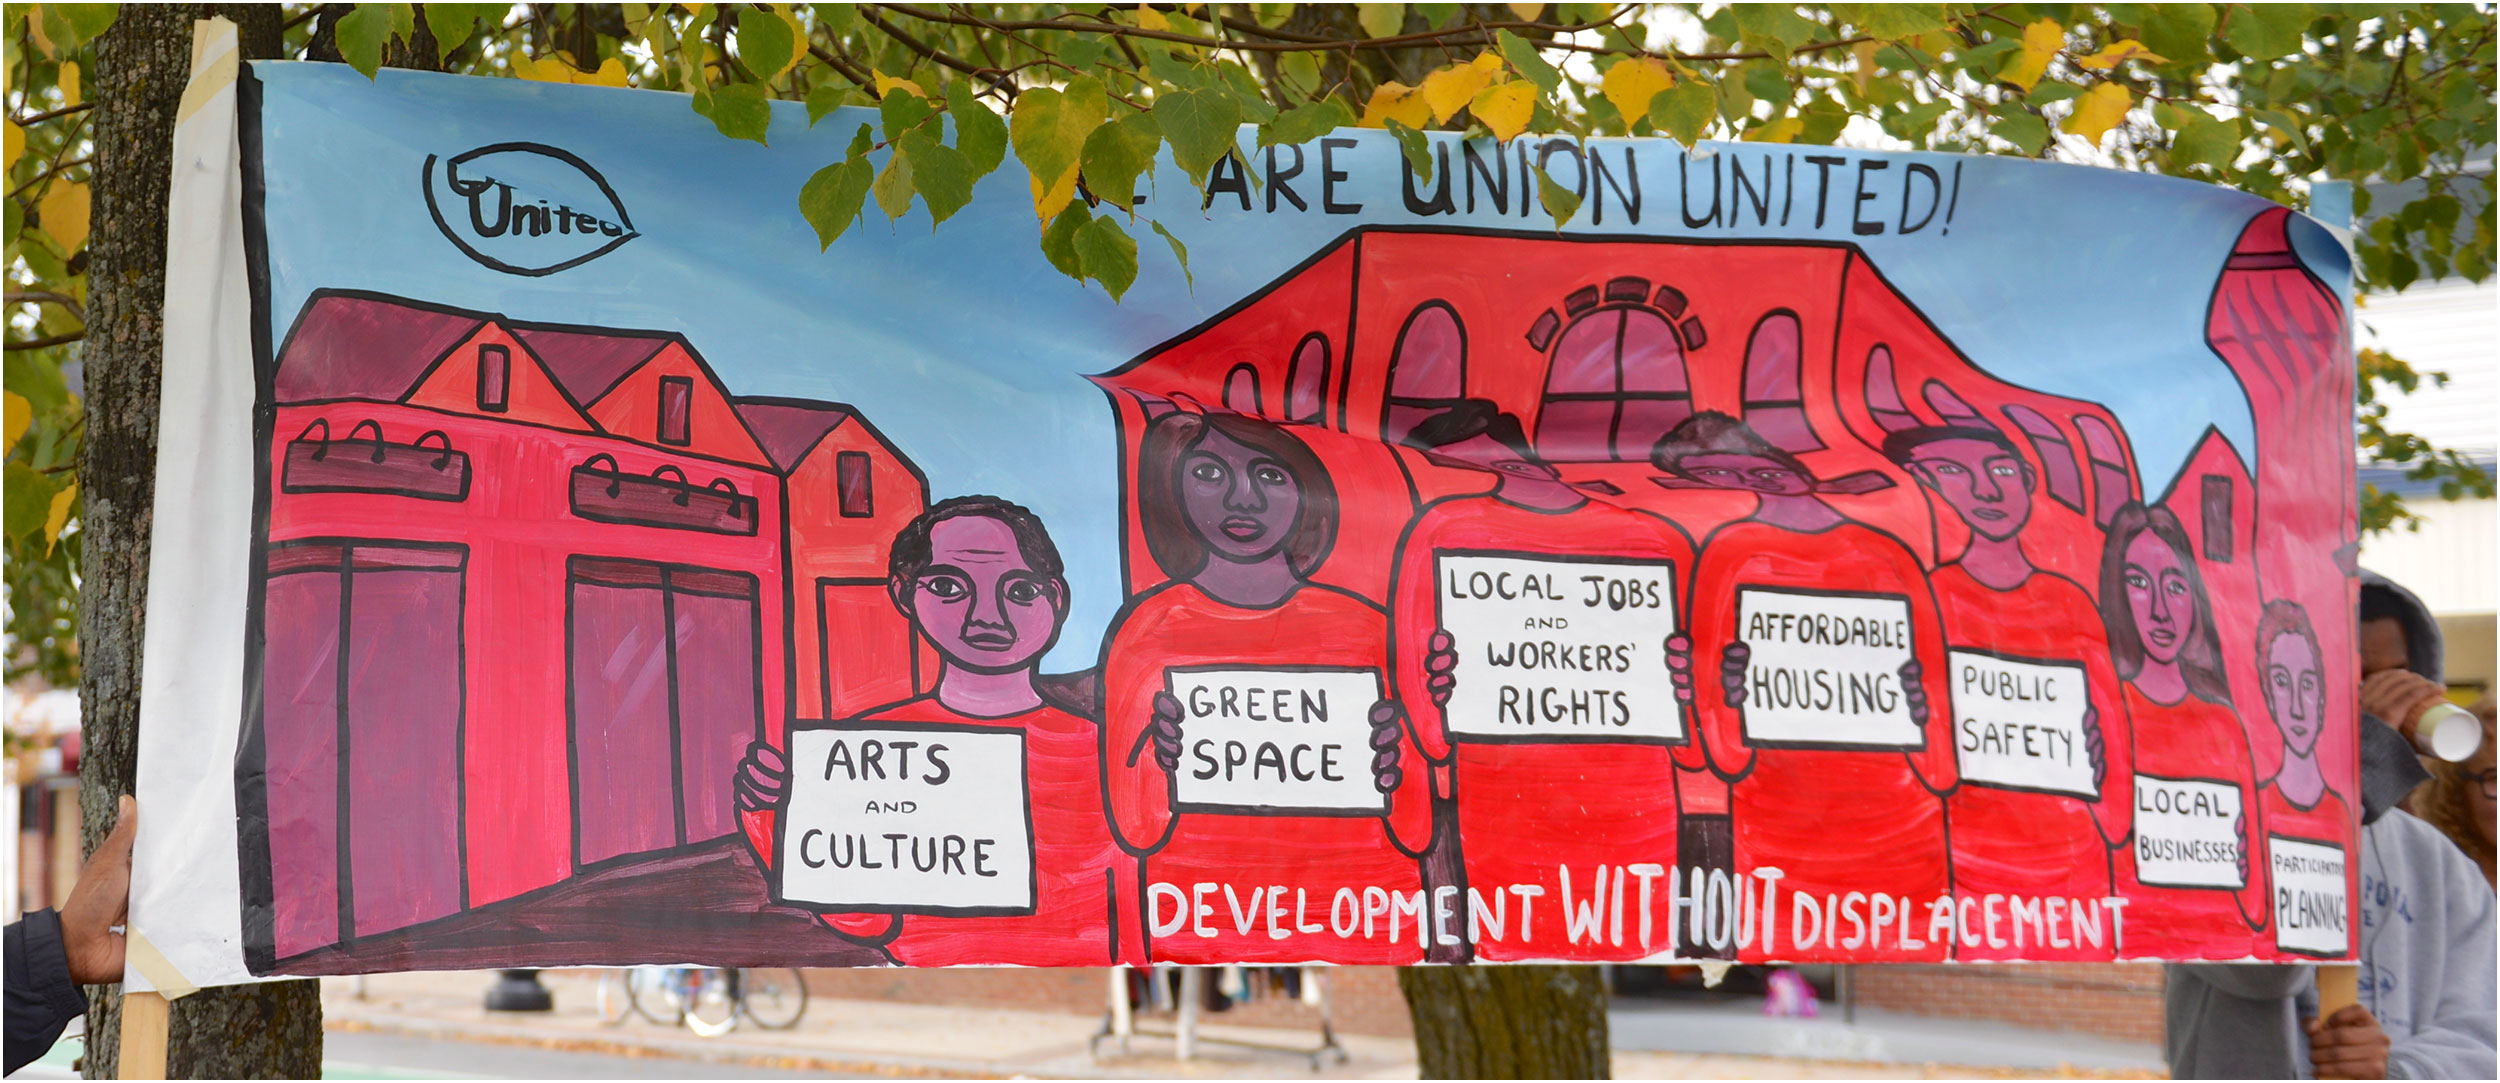 United
ARE UNION UNITED!
ARTS
AND
CULTURE
GREEN
SPACE
LOCAL JOBS
AND
WORKERS'
RIGHTS
AFFORDABLE
HOUSING
PUBLIC
SAFETY
LOCAL
BUSINESSES
PLANNING
DEVELOPMENT WITHOUT DISPLACEMENT